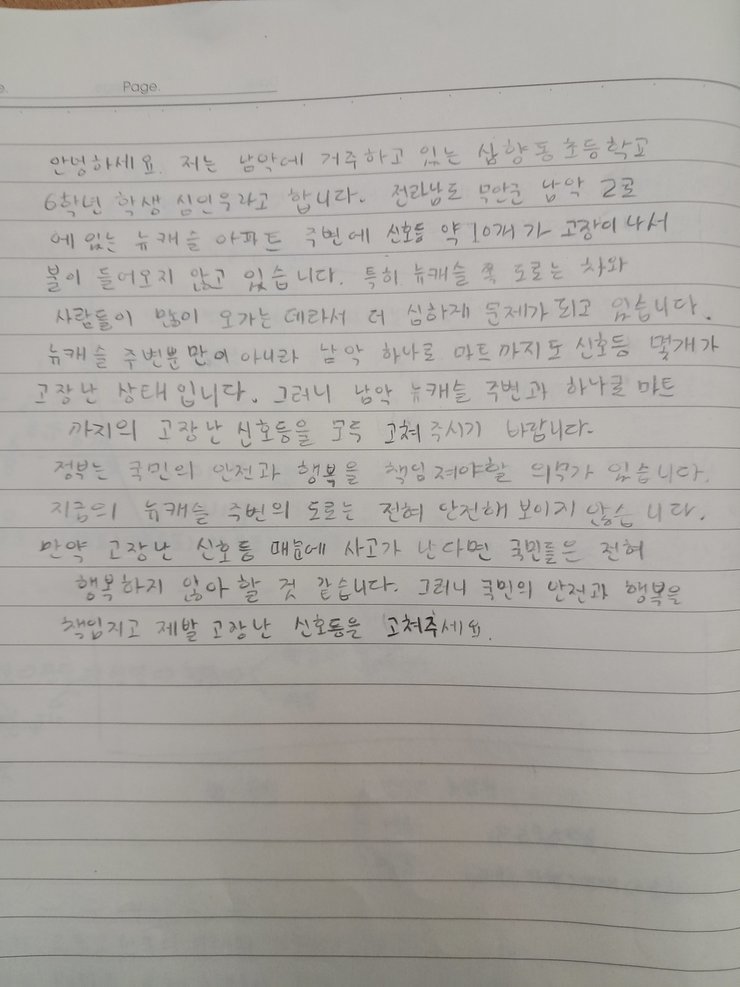 Page.
안녕하세요. 저는 남악에 거주하고 있는 삼향동초등학교
6학년 학생 심인우라고 합니다. 전라남도 무안군 남악 2로
에 있는 뉴캐슬 아파트 주변에 신호등 약 10개가 고장이 나서
불이 들어오지 않고 있습니다. 특히 뉴캐슬 쪽 도로는 차와
사람들이 많이 오가는 데라서 더 심하재 문제가 되고 있습니다.
뉴캐슬 주변뿐만이 아니라 남악 하나로 마트까지도 신호등 몇개가
고장난 상태입니다. 그러니 남악 뉴캐슬 주변과 하나로 마트
까지의 고장난 신호등을 모두 고쳐주시기 바랍니다.
정부는 국민의 안전과 행복을 책임져야할 의무가 있습니다.
지금의 뉴캐슬 주변의 도로는 전혀 안전해 보이지 않습니다.
만약 고장난 신호등 때문에 사고가 난다면 국민들은 전혀
행복하지 않아 할 것 같습니다. 그러니 국민의 안전과 행복을
책임지고 제발 고장난 신호등을 고쳐주세요.